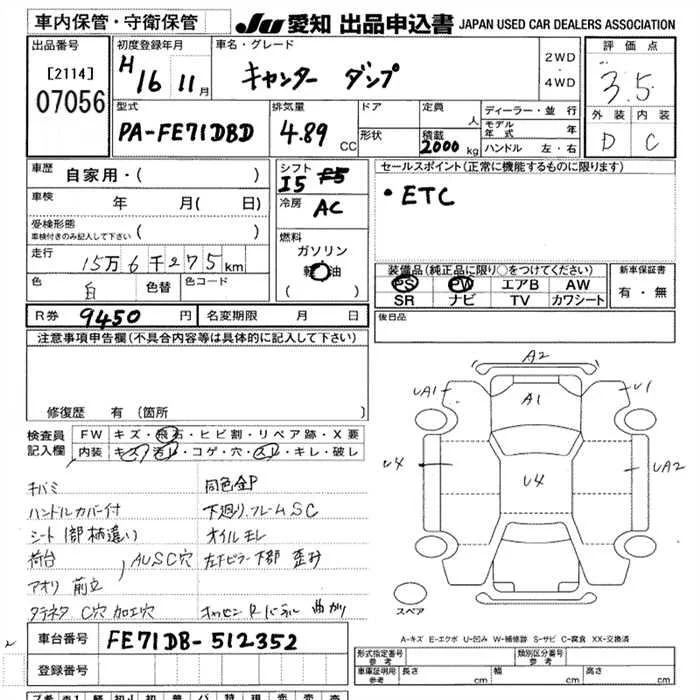 車内保管・守衛保管
JU 愛知 出品申込書 JAPAN USED CAR DEALERS ASSOCIATION
出品番号
[2114]
07056
初度登録年月
H16 11月
車名・グレード
キャンター ダンプ
2WD
・
4WD
評価点
3.5
外装 内装
D C
型式
PA-FE71DBD
排気量
4.89 CC
ドア
形状
定員
人
積載
2000 kg
ディーラー・並行
モデル年式 年
ハンドル 左・右
車歴
自家用・( )
車検 年 月( 日)
受検形態
車検付きのみ記入して下さい ( )
走行
15万6千275km
色
白
色替
色コード
シフト
I5 F5
冷房
AC
燃料
ガソリン
軽油
( )
セールスポイント(正常に機能するものに限ります)
・ETC
装備品(純正品に限り○をつけてください)
PS PW エアB AW
SR ナビ TV カワシート
新車保証書
有・無
R券 9450 円
名変期限 月 日
後日品
注意事項申告欄(不具合内容等は具体的に記入して下さい)
修復歴 有 (箇所 )
検査員記入欄
FW キズ・飛石・ヒビ割・リペア跡・X要
内装 キズ・汚レ・コゲ・穴・スレ・キレ・破レ
チバミ 同色全P
ハンドルカバー付 下廻り、フレームSC
シート1部柄違い オイルモレ
荷台 AUSC穴 左Fピラー下部 歪み
アオリ 前立
タテネタ C穴 加工穴 曲がり
A2
UA1
A1
U1
U4
U4
UA2
スペア
A-キズ E-エクボ U-凹み W-補修跡 S-サビ C-腐食 XX-交換済
車台番号 FE71DB-512352
登録番号
形式指定番号 参考
類別区分番号 参考
車庫証明用 参考
長さ cm
幅 cm
高さ cm